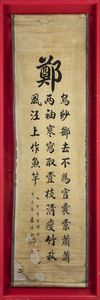 鄭
烏紗擲去不為官囊橐蕭蕭
兩袖寒寫取壹枝清瘦竹秋
風江上作魚竿